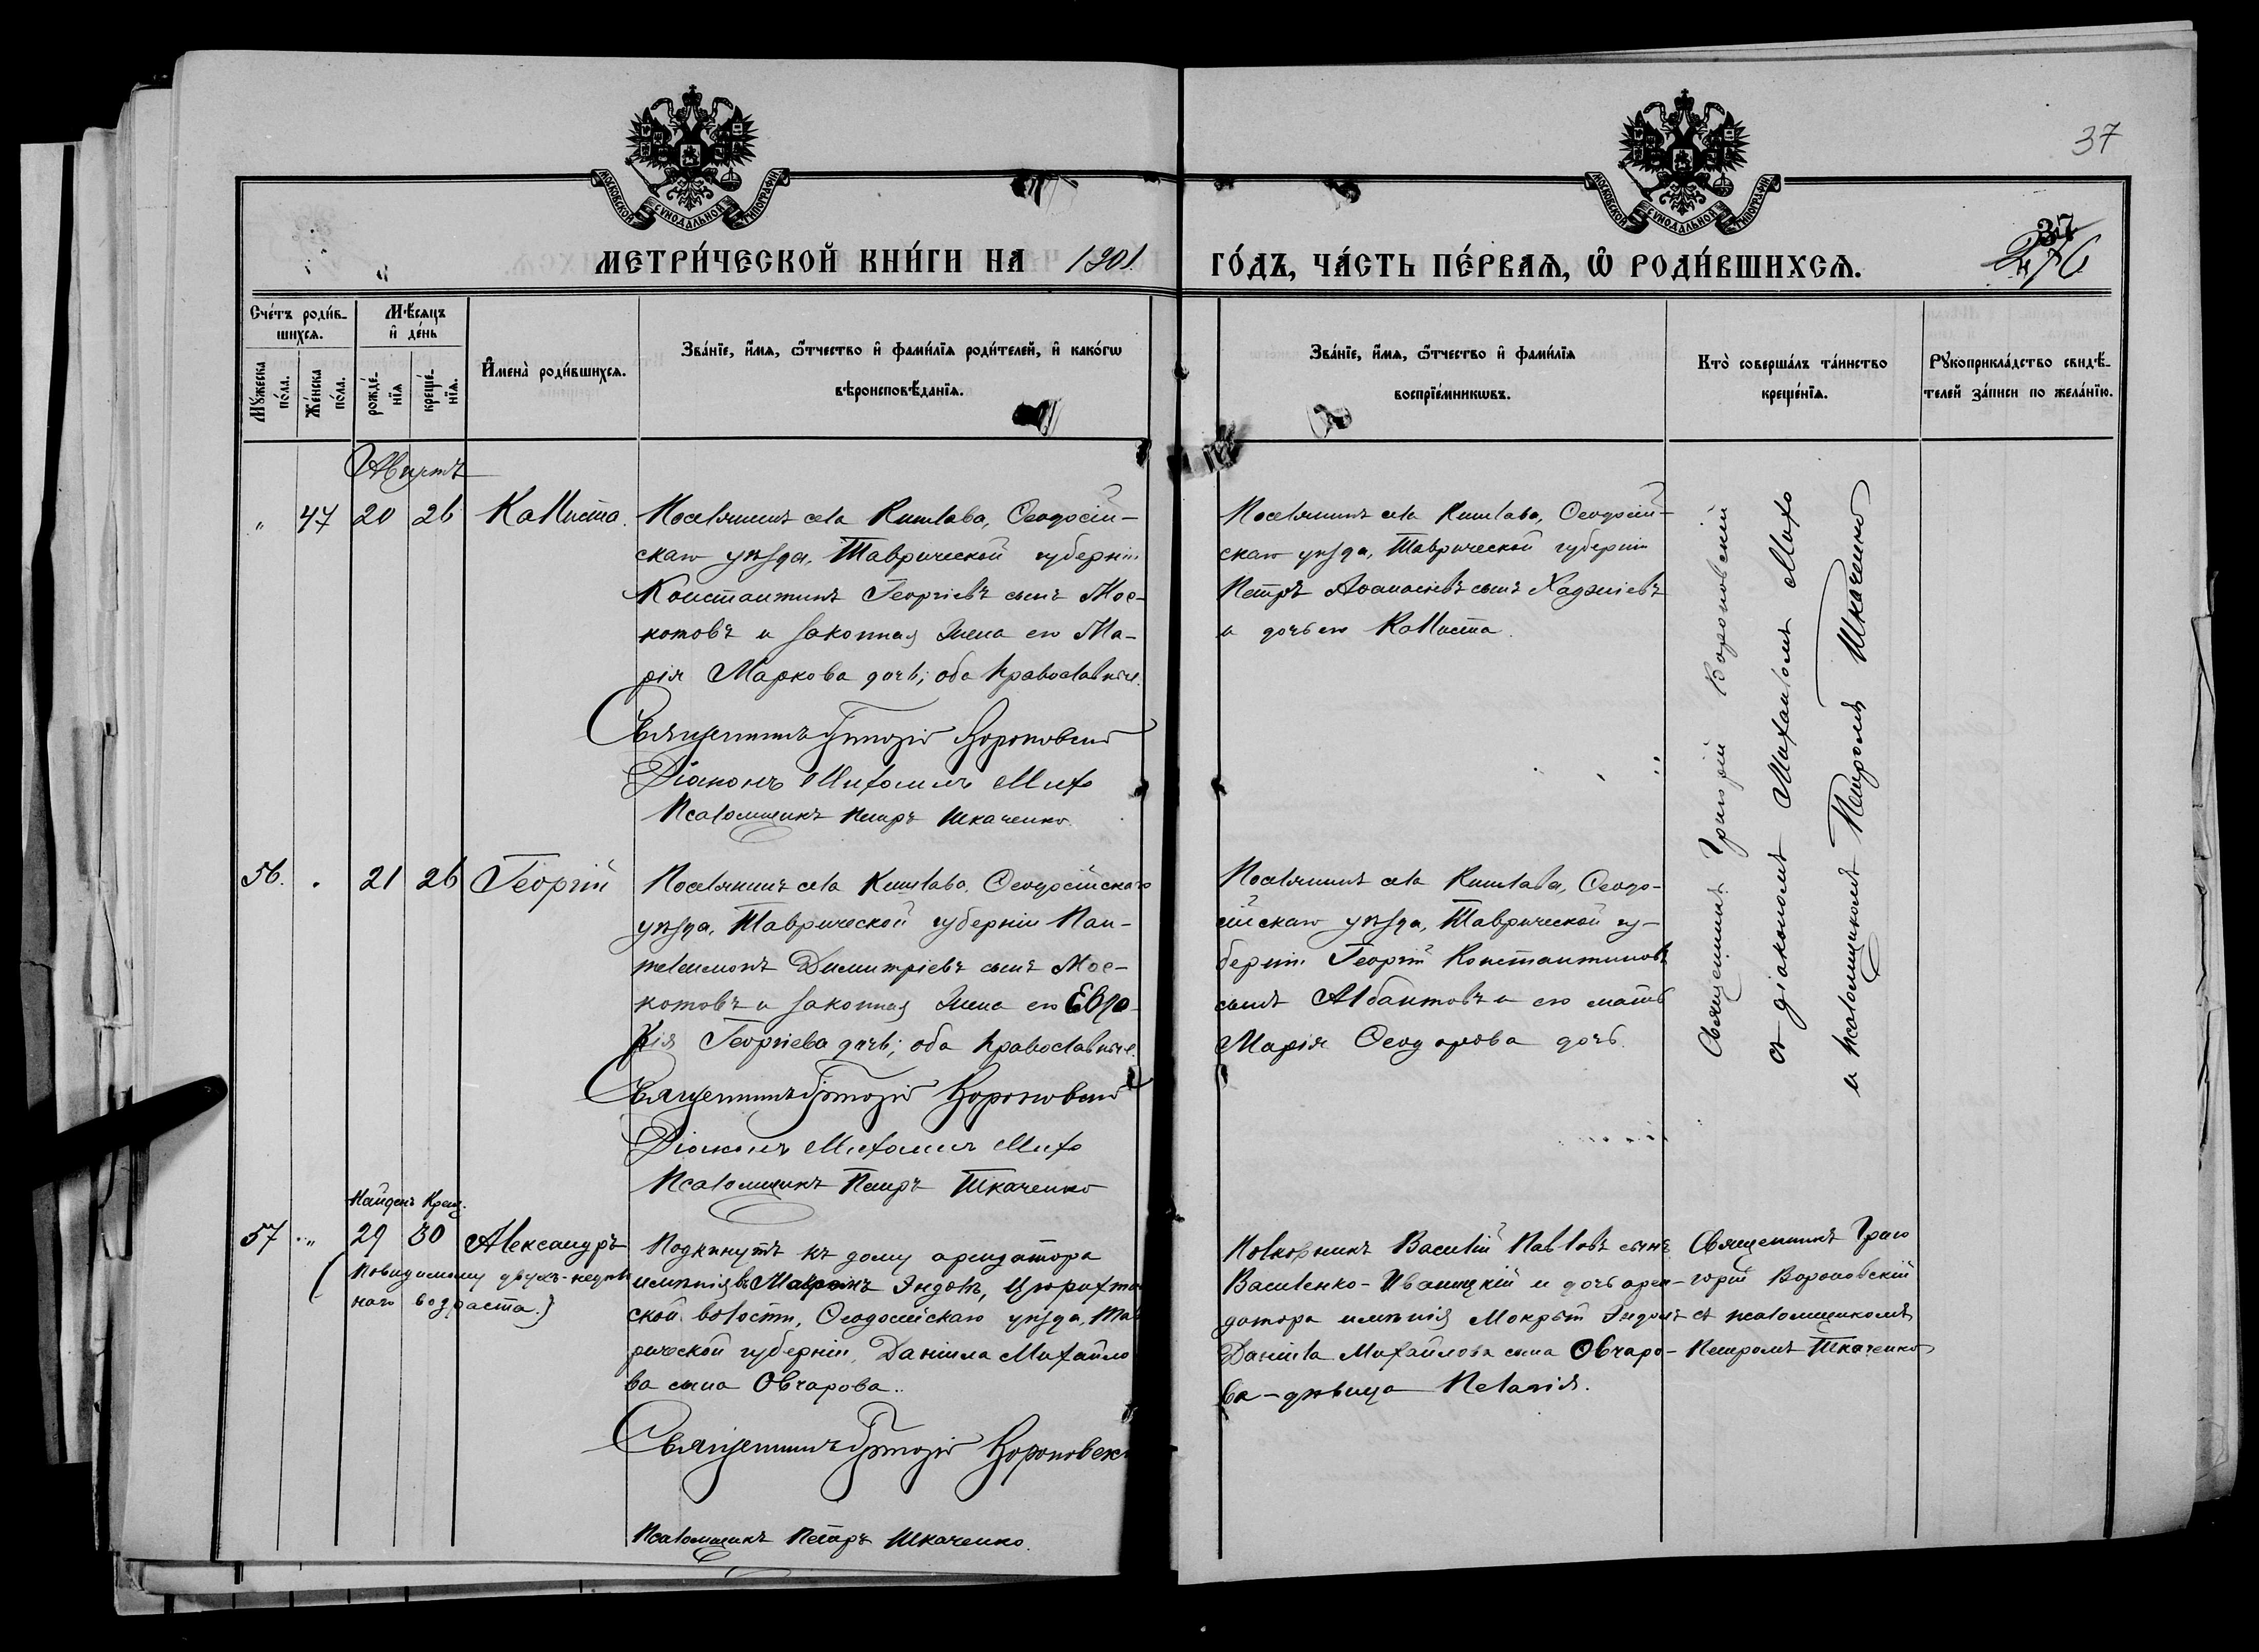 37
МОСКОВСКОЙ СѴНОДАЛЬНОЙ ТИПОГРАФІИ
МОСКОВСКОЙ СѴНОДАЛЬНОЙ ТИПОГРАФІИ
МЕТРИ́ЧЕСКОЙ КНИ́ГИ НА 1901
ГО́ДЪ, ЧА́СТЬ ПЕ́РВАѦ, Ѡ҆ РОДИ́ВШИХСѦ.
37
Сче́тъ роди́в-
шихсѧ.
Мꙋ́жеска по́ла.
Же́нска по́ла.
Мѣ́сѧцъ
и҆ де́нь
рожде́-
нїѧ
креще́-
нїѧ.
И҆мена̀ роди́вшихсѧ.
Зва́нїе, и҆́мѧ, ѻ҆́тчество и҆ фами́лїѧ роди́телей, и҆ како́гѡ
вѣроисповѣ́данїѧ.
Зва́нїе, и҆́мѧ, ѻ҆́тчество и҆ фами́лїѧ
воспрїе́мникѡвъ.
Кто̀ соверша́лъ та́инство
креще́нїѧ.
Рꙋкоприкла́дство свидѣ́-
телей за́писи по жела́нїю.
Августъ
" 47 20 26 Каллиста.
Поселянинъ села Кишлава, Ѳеодосій-
скаго уѣзда, Таврической губерніи
Константинъ Георгіевъ сынъ Мос-
котовъ и законная жена его Ма-
рія Маркова дочь; оба православные.
Священникъ Григорій Вороновскій
Діаконъ Михаилъ Михо
Псаломщикъ Петръ Ткаченко.
Поселянинъ села Кишлава, Ѳеодосій-
скаго уѣзда, Таврической губерніи
Петръ Аѳанасіевъ сынъ Хаджіевъ
и дочь его Каллиста.
Священникъ Григорій Вороновскій
съ діакономъ Михаиломъ Михо
и псаломщикомъ Петромъ Ткаченко
56. " 21 26 Георгій
Поселянинъ села Кишлава, Ѳеодосійскаго
уѣзда, Таврической губерніи Пан-
телеимонъ Димитріевъ сынъ Мос-
котовъ и законная жена его Евдо-
кія Георгіева дочь; оба православные.
Священникъ Григорій Вороновскій
Діаконъ Михаилъ Михо
Псаломщикъ Петръ Ткаченко
Поселянинъ села Кишлава, Ѳеодо-
сійскаго уѣзда, Таврической гу-
берніи Георгій Константиновъ
сынъ Албантовъ и его мать
Марія Ѳеодорова дочь.
Найденъ Крещ.
57 " 29 30 Александръ
(Повидимому двухъ-недѣль
наго возраста.)
Подкинутъ къ дому арендатора
имѣнія Мокромъ Эндолѣ, Цюрихталь
ской волости, Ѳеодосійскаго уѣзда, Тав
рической губерніи, Даніила Михайло
ва сына Овчарова..
Священникъ Григорій Вороновскі
Псаломщикъ Петръ Ткаченко.
Полковникъ Василій Павловъ сынъ
Василенко-Иваницкій и дочь арен-
датора имѣнія Мокрый Эндолъ
Даніила Михайлова сына Овчаро-
ва-дѣвица Пелагія.
Священникъ Григо
горій Вороновскій
съ псаломщикомъ
Петромъ Ткаченко